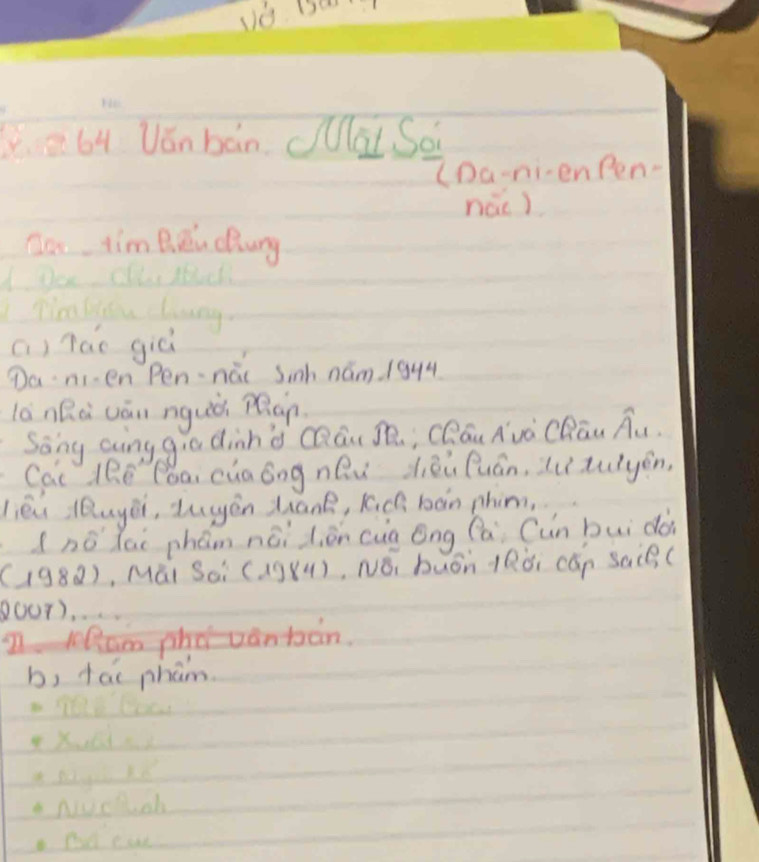 Vở
64 Văn bản. Mắt Sói
(Da-ni-en Pen-
nắc)
tìm hiểu chung
Tìm hiểu chung.
a) Tác giả
Da-ni-en Pen-nắc sinh năm 1944
là nhà văn người Pháp.
Sống cùng gia đình ở Châu Phi, Châu Á và Châu Âu.
Các thể loại của ông như tiểu luận, tự truyện,
tiểu thuyết, truyện tranh, kịch bản phim,
số tác phẩm nổi tiến của ông là: Cún bụi đời
(1982), Mắt Sói (1984), Nỗi buồn thời cắp sách (
2007),....
II. Khám phá văn bản.
b, tác phẩm
Thể loại
Xuất xứ
Ngôi kể
Nhân
Bố cục